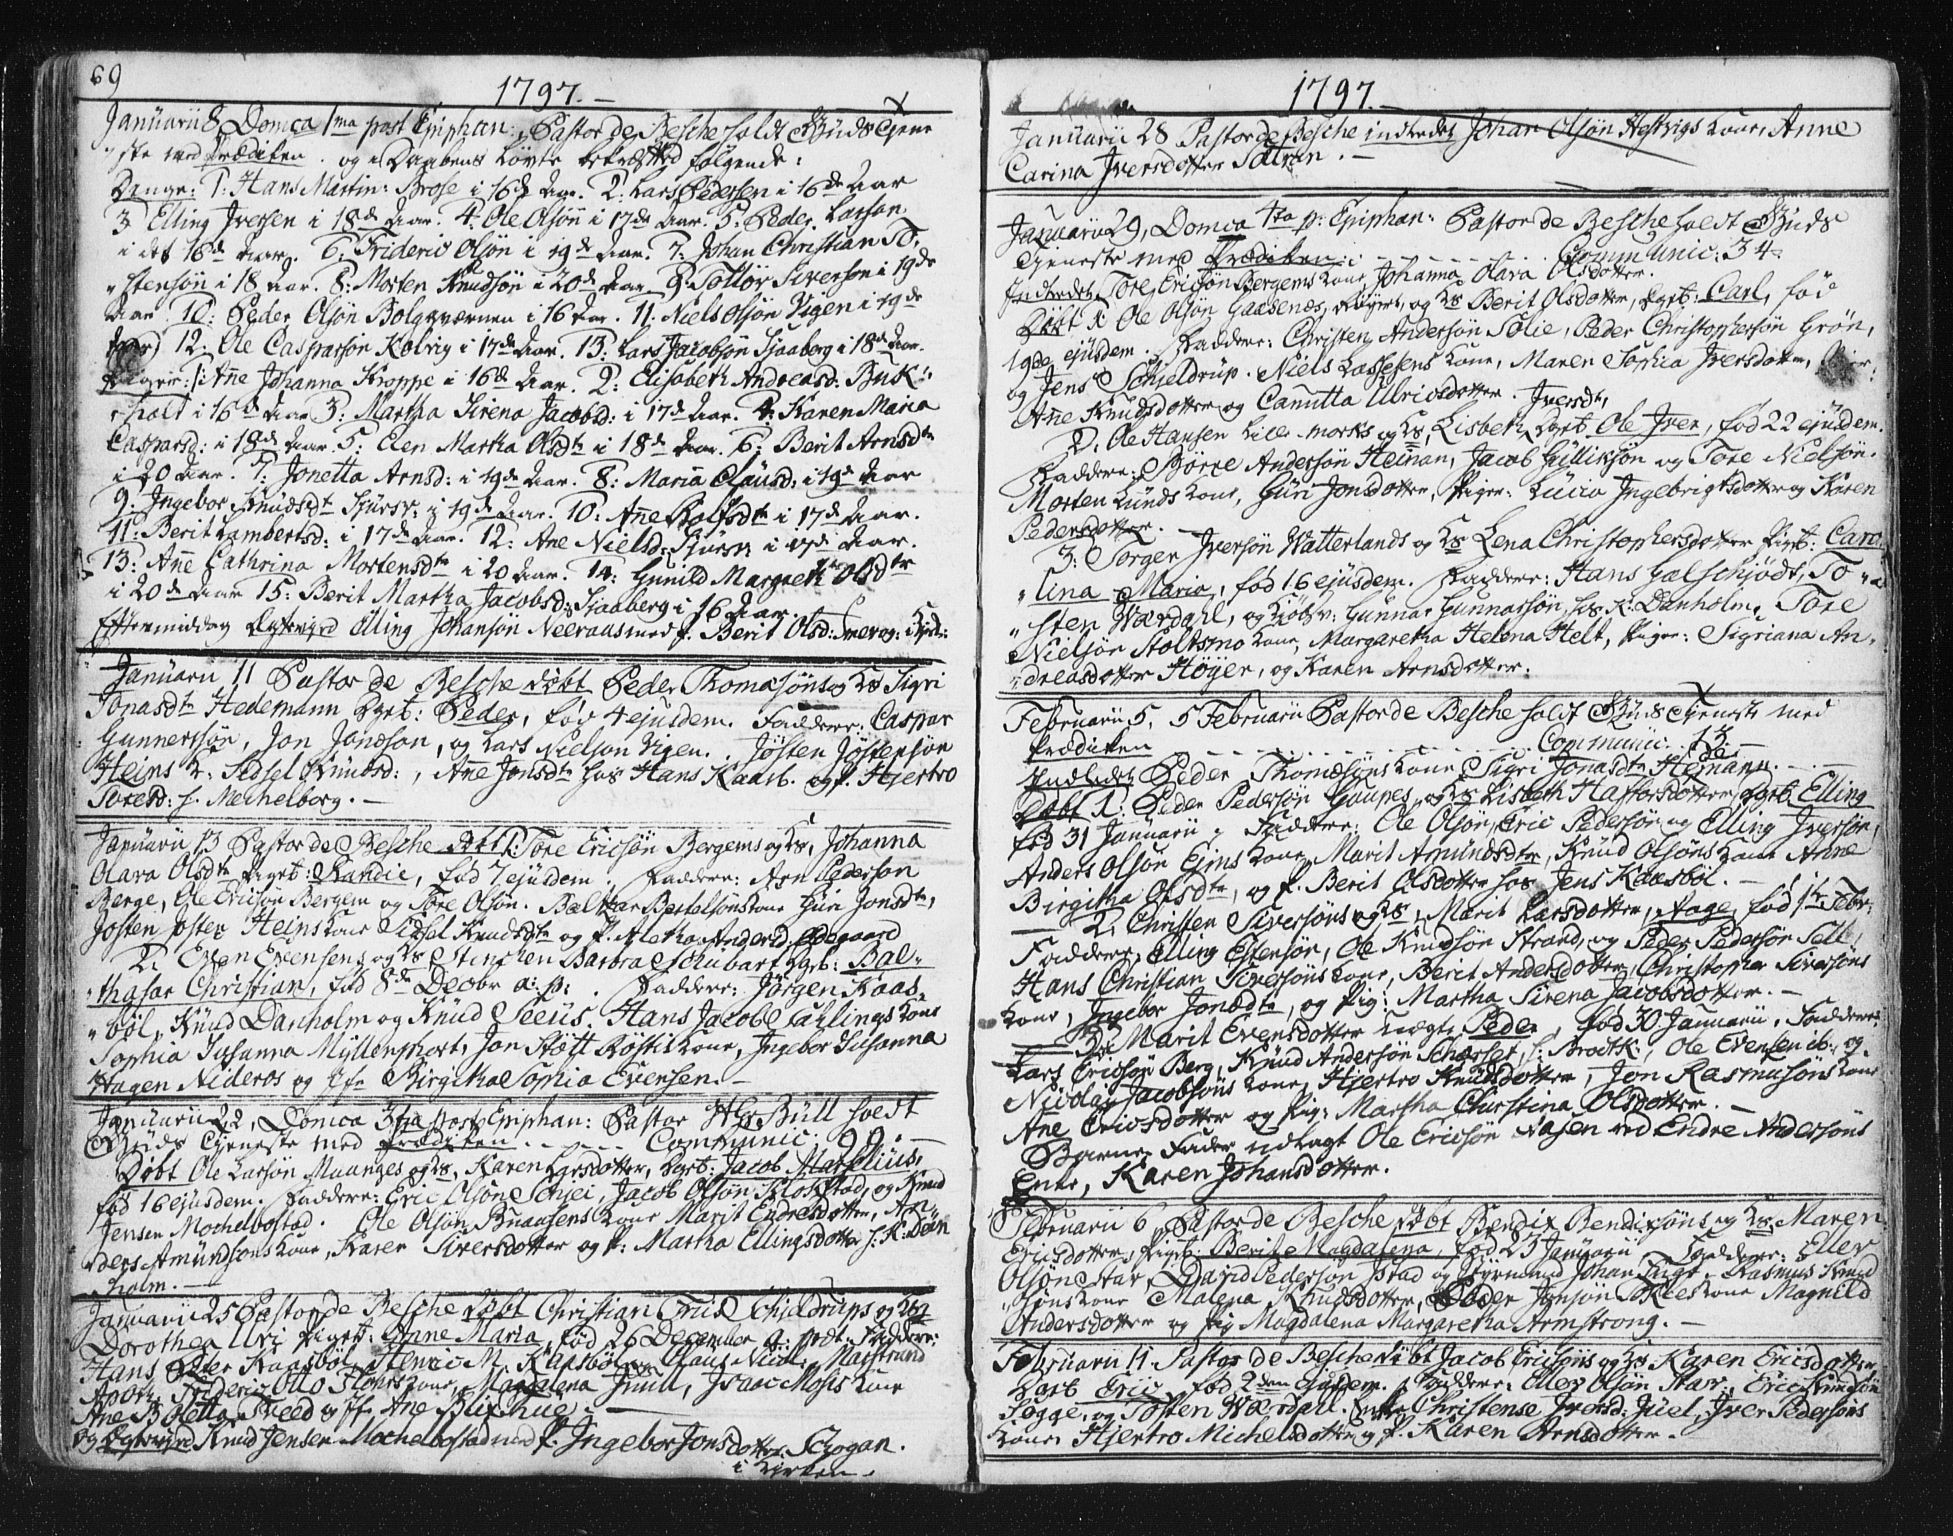 69
1797.
Januarii 8, Domca 1ma post Epiphan: Pastor de Besche holdt Gudstiene
ste med Prædiken. og i Daabens Løvte bekræfted følgende:
Dränge: 1: Hans Martin: Brose i 16de Aar. 2: Lars Pedersen i 16de Aar
3 Elling Iversen i 18de Aar. 4. Ole Olsøn i 17de Aar. 5: Peder Larsøn
i det 16de Aar. 6: Frideric Olsøn i 19de Aar. 7: Johan Christian To,
stensøn i 18 Aar. 8: Morten Knudsøn i 20de Aar 9: Tolløv Siversøn i 19de
Aar. 10: Peder Olsøn Bolgværnen i 16 Aar. 11. Niels Olsøn Vigen i 19de
Aar 12: Ole Casparsøn Kolvig i 17de Aar. 13: Lars Jacobsøn Sjaaberg i 18de Aar.
Piger: 1: Añe Johanna Kroppe i 16de Aar. 2: Elisabeth Andreasd: Buk-
holt i 16de Aar 3: Martha Sirena Jacobsd: i 17de Aar. 4: Karen Maria
Caspersd: i 18de Aar. 5: Elen Martha Olsdtr i 18de Aar. 6: Berit Arnsdtr
i 20 Aar. 7: Jonetta Arnsd: i 19de Aar. 8: Maria Clausd: i 19de Aar
9: Ingebor Knudsdtr i 19de Aar. 10: Añe Rolfsdtr i 17de Aar.
11: Berit Lambertsd: i 17de Aar. 12: Ane Nielsd: i 17de Aar.
13: Añe Cathrina Mortensdtr i 20 Aar. 14: Gunild Margreth Olsdtr
i 20de Aar 15: Berit Martha Jacobsd: Sjaaberg i 16 Aar.
Eftermiddag Ægteviet Elling Johansøn Neeraas med P. Berit Olsd:
Januarii 11 Pastor de Besche døbt Peder Thomasøns og Ks Sigri
Jonasdtr Hedemann Dgrb: Peder, fød 4 ejusdem. Faddere: Caspar
Gunnersøn, Jon Jonæson, og Lars Nielson Vigen. Jøsten Jøstensøn
Heins K. Sidsel Knudsd:, Añe Jonsdtr hos Hans Kaasb. og P. Hjertro
Toresd: h. Mechelborg.
Januarii 13 Pastor de Besche døbt 1: Tore Ericsøn Bergems og Ks, Johanna
Olara Olsdtr Pigeb: Randie, fød 7 ejusdem. Faddere: Arn Pederson
Berge, Ole Ericsøn Bergem og Tore Olsøn. Baltzar Bertelsøns Kone Guri Jonsdtr,
Josten Josten Heins Kone Sidsel Knudsdtr og P. Aletha Anderid. Ødegaard
2: Even Evensens og Ks Stinchen Barbra Schubart Dgrb: Bal-
thasar Christian, fød 8de Decbr a: p: Faddere: Jørgen Kaas,
bøl, Knud Danholm og Knud Seeus. Hans Jacob Sahlings Kone
Sophia Susanna Mÿllenphort, Jon Støtt Rostis Kone, Ingebor Susanna
Hagen Nideros og Jfr Birgitha Sophia Evensen.
Januarii 22, Domca 3tia post Epiphan: Pastor Hr Büll holdt
Gudstieneste med Prædiken. Communic. 99.
Døbt Ole Larsøn Maanges og Ks, Karen Larsdotter, Dgrb: Jacob Marselius,
fød 16 ejusdem. Faddere: Eric Olsøn Schjei, Jacob Olsøn Klokstad, og Knud
Jensen Mochelbostad. Ole Olsøn Knausens Kone Marit Endresdotter, An-
ders Amundsøns Kone, Karen Siversdotter og P: Martha Ellingsdotter h. K: Dan
holm.
Januarii 25 Pastor de Besche døbt Christian Erud Schieldrups og Ks
Dorothea Uri Pigeb: Anne Maria, fød 26 December a: præt: Faddere:
Hans Peter Kaasbøl, Henric M. Kaasbøl og Claus Nicol. Maistrand
Apoth: Frideric Otto Flohrs Kone, Magdalena Juul, Isaac Moses Kone
Ane Boletta Tveed og Jfr Ane Buschue.
og Ægteviet Knud Jensen Mochelbostad med P. Ingebor Jonsdotter Schogan.
i Kirken.
1797.
Januarii 28 Pastor de Besche indledet Johan Olsøn Hestvigs Kone, Anne
Carina Iversdotter Sætran.
Januarii 29, Domca 4ta p: Epiphan: Pastor de Besche holdt Guds
tieneste med Prædiken. Communic: 34.
Indledet Tore Ericsøn Bergems Kone, Johanna Olara Olsdotter.
Døbt 1: Ole Olsøn Gaasenes, og Ks Berit Olsdotter, Dgrb: Carl, fød
19de ejusdem. Faddere: Christen Andersøn Solie, Peder Christophersøn Grøn,
og Jens Schjeldrup. Niels Lassesens Kone, Maren Sophia Iversdotter,
Añe Knudsdotter og Canutta Ulricsdotter. Iversdtr
2. Ole Hansen Lille-Morks og Ks, Lisbeth Dgrb Ole Iver, fød 22 ejusdem.
Faddere: Børre Andersøn Heinan, Jacob Gulliksøn og Tore Nielsøn.
Morten Lunds Kone, Guri Jonsdotter, Piger: Lucia Ingebrigtsdotter og Karen
Pedersdotter.
3: Jørgen Iversøn Watterlands og Ks Lena Christophersdotter Pigeb: Caro,
lina Maria, fød 16 ejusdem. Faddere: Hans Galschjødt, To
sten Wærdahl, og Gunnar Gunnarsøn, hos K: Danholm. Tore
Nielsøn Stoltsmo Kone, Margaretha Helena Helt, Piger: Sigriana An,
dreasdotter Høyer, og Karen Arnsdotter.
Februarii 5, 5 Februarii Pastor de Besche holdt Gudstieneste med
Prædiken Communic. 13
Indledet Peder Thomæsøns Kone Sigri Jonasdtr Hemann.
Døbt 1: Peder Pedersøn Gaupes, og Ks Lisbeth Hastorsdotter, Dgrb Elling
fød 31 Januarii. Faddere: Ole Olsøn, Eric Pedersøn og Elling Iversøn,
Anders Olsøn Ejens Kone, Marit Amundsdtr, Knud Olsøns Kone Anne
Birgitha Olsdtr, og P. Berit Olsdotter hos Jens Kaasbøl.
2: Christen Siversøns og Ks, Marit Larsdotter, Aage, fød 1ste Febr:
Faddere: Elling Estensøn, Ole Knudsøn Strand, og Peder Pedersøn Sell,
Hans Christian Toresøns Kone, Berit Andersdotter, Christopher Siversøns
Kone, Ingebor Jonsdtr, og Pig: Martha Sirena Jacobsdotter.
3: Marit Evensdotter Uægte Peder, fød 30 Januarii. Faddere:
Lars Ericsøn Berg, Knud Andersøn Schorset, h. Brodtk:, Ole Evensen ib:, og
Nicolay Jacobsøns Kone, Hjertro Knudsdotter, Jon Rasmusøns Kone
Ane Ericsdotter og Pig: Martha Christina Olsdotter.
Barnefader udlagt Ole Ericsøn Aasen ved Endre Andersøns
Enke, Karen Johansdotter.
Februarii 6 Pastor de Besche døbt Bendix Bendixsøns og Ks Maren
Ericsdotter, Pigeb: Berit Magdalena, fød 23 Januarii, Faddere: Eller
Olsøn Star, David Pederson Istad og Styrmand Johan Lings. Rasmus Knud
søns Kone Malena Knudsdotter, Peder Jonsøn Klees Kone Magnild
Andersdotter og Pig Magdalena Margaretha Armstrong.
Februarii 11. Pastor de Besche døbt Jacob Ericsøns og Ks Karen Ericsdotter,
Dgrb Eric, fød 2den ejusdem. Faddere: Eller Olsøn Star, Eric Knudsøn
Sogge, og Tosten Wærdahl. Enke Christense Iversd: Juel, Iver Pedersøns
Kone Hjertro Michelsdotter og P. Karen Arnsdotter.